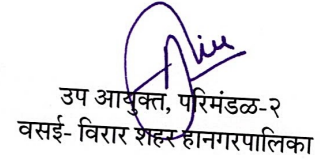 उप आयुक्त, परिमंडळ-२
वसई- विरार शहर हानगरपालिका